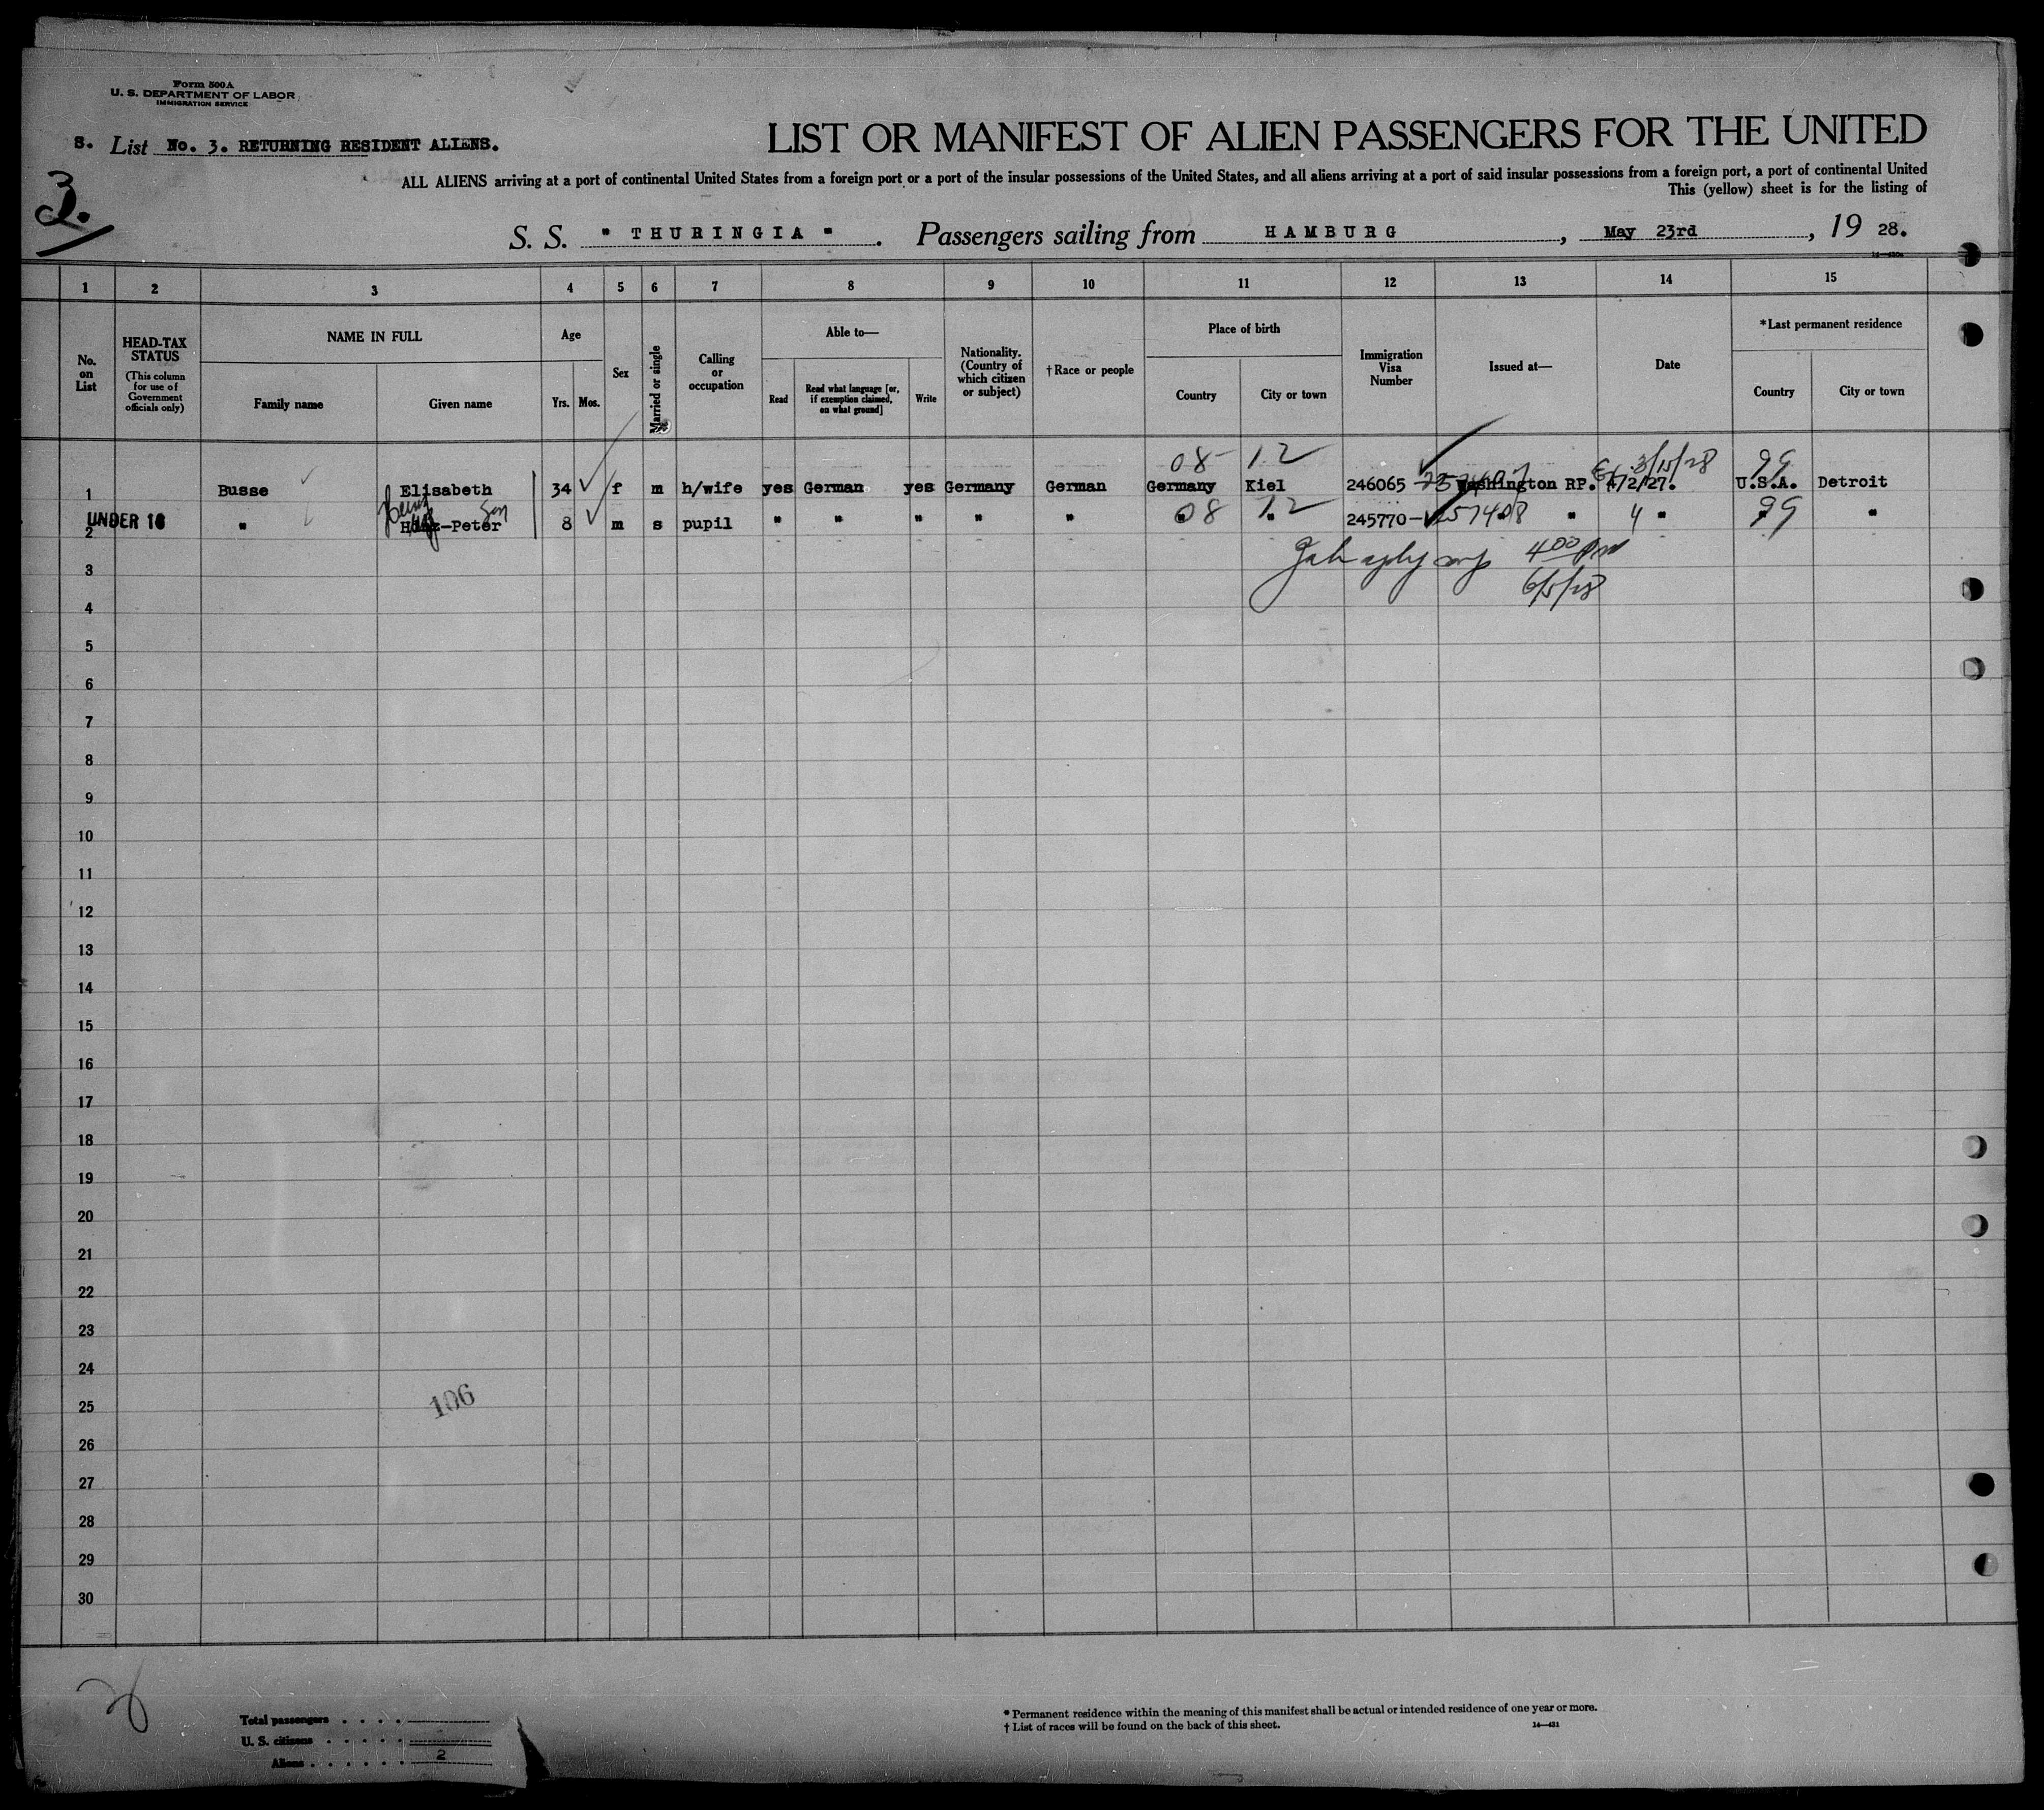 Form 500A
U. S. DEPARTMENT OF LABOR
IMMIGRATION SERVICE
S. List No. 3. RETURNING RESIDENT ALIENS.
LIST OR MANIFEST OF ALIEN PASSENGERS FOR THE UNITED
ALL ALIENS arriving at a port of continental United States from a foreign port or a port of the insular possessions of the United States, and all aliens arriving at a port of said insular possessions from a foreign port, a port of continental United
This (yellow) sheet is for the listing of
3.
S. S. " THURINGIA " . Passengers sailing from HAMBURG , May 23rd , 19 28.
1 2 3 4 5 6 7 8 9 10 11 12 13 14 15
No. on List
HEAD-TAX STATUS
(This column for use of Government officials only)
NAME IN FULL
Family name
Given name
Age
Yrs. Mos.
Sex
Married or single
Calling or occupation
Able to—
Read
Read what language [or, if exemption claimed, on what ground]
Write
Nationality. (Country of which citizen or subject)
†Race or people
Place of birth
Country
City or town
Immigration Visa Number
Issued at—
Date
*Last permanent residence
Country
City or town
08 12 3/15/28 99
1 Busse Elisabeth 34 f m h/wife yes German yes Germany German Germany Kiel 246065 Washington RP. 4/2/27. U.S.A. Detroit
son
UNDER 16
2 " -Peter 8 m s pupil " " " " " " 08 " 12 245770 257408 " " 99 "
4 00 pm
3
6/5/28
4
5
6
7
8
9
10
11
12
13
14
15
16
17
18
19
20
21
22
23
24
106
25
26
27
28
29
30
Total passengers
U. S. citizens
Aliens 2
* Permanent residence within the meaning of this manifest shall be actual or intended residence of one year or more.
† List of races will be found on the back of this sheet.
14—421